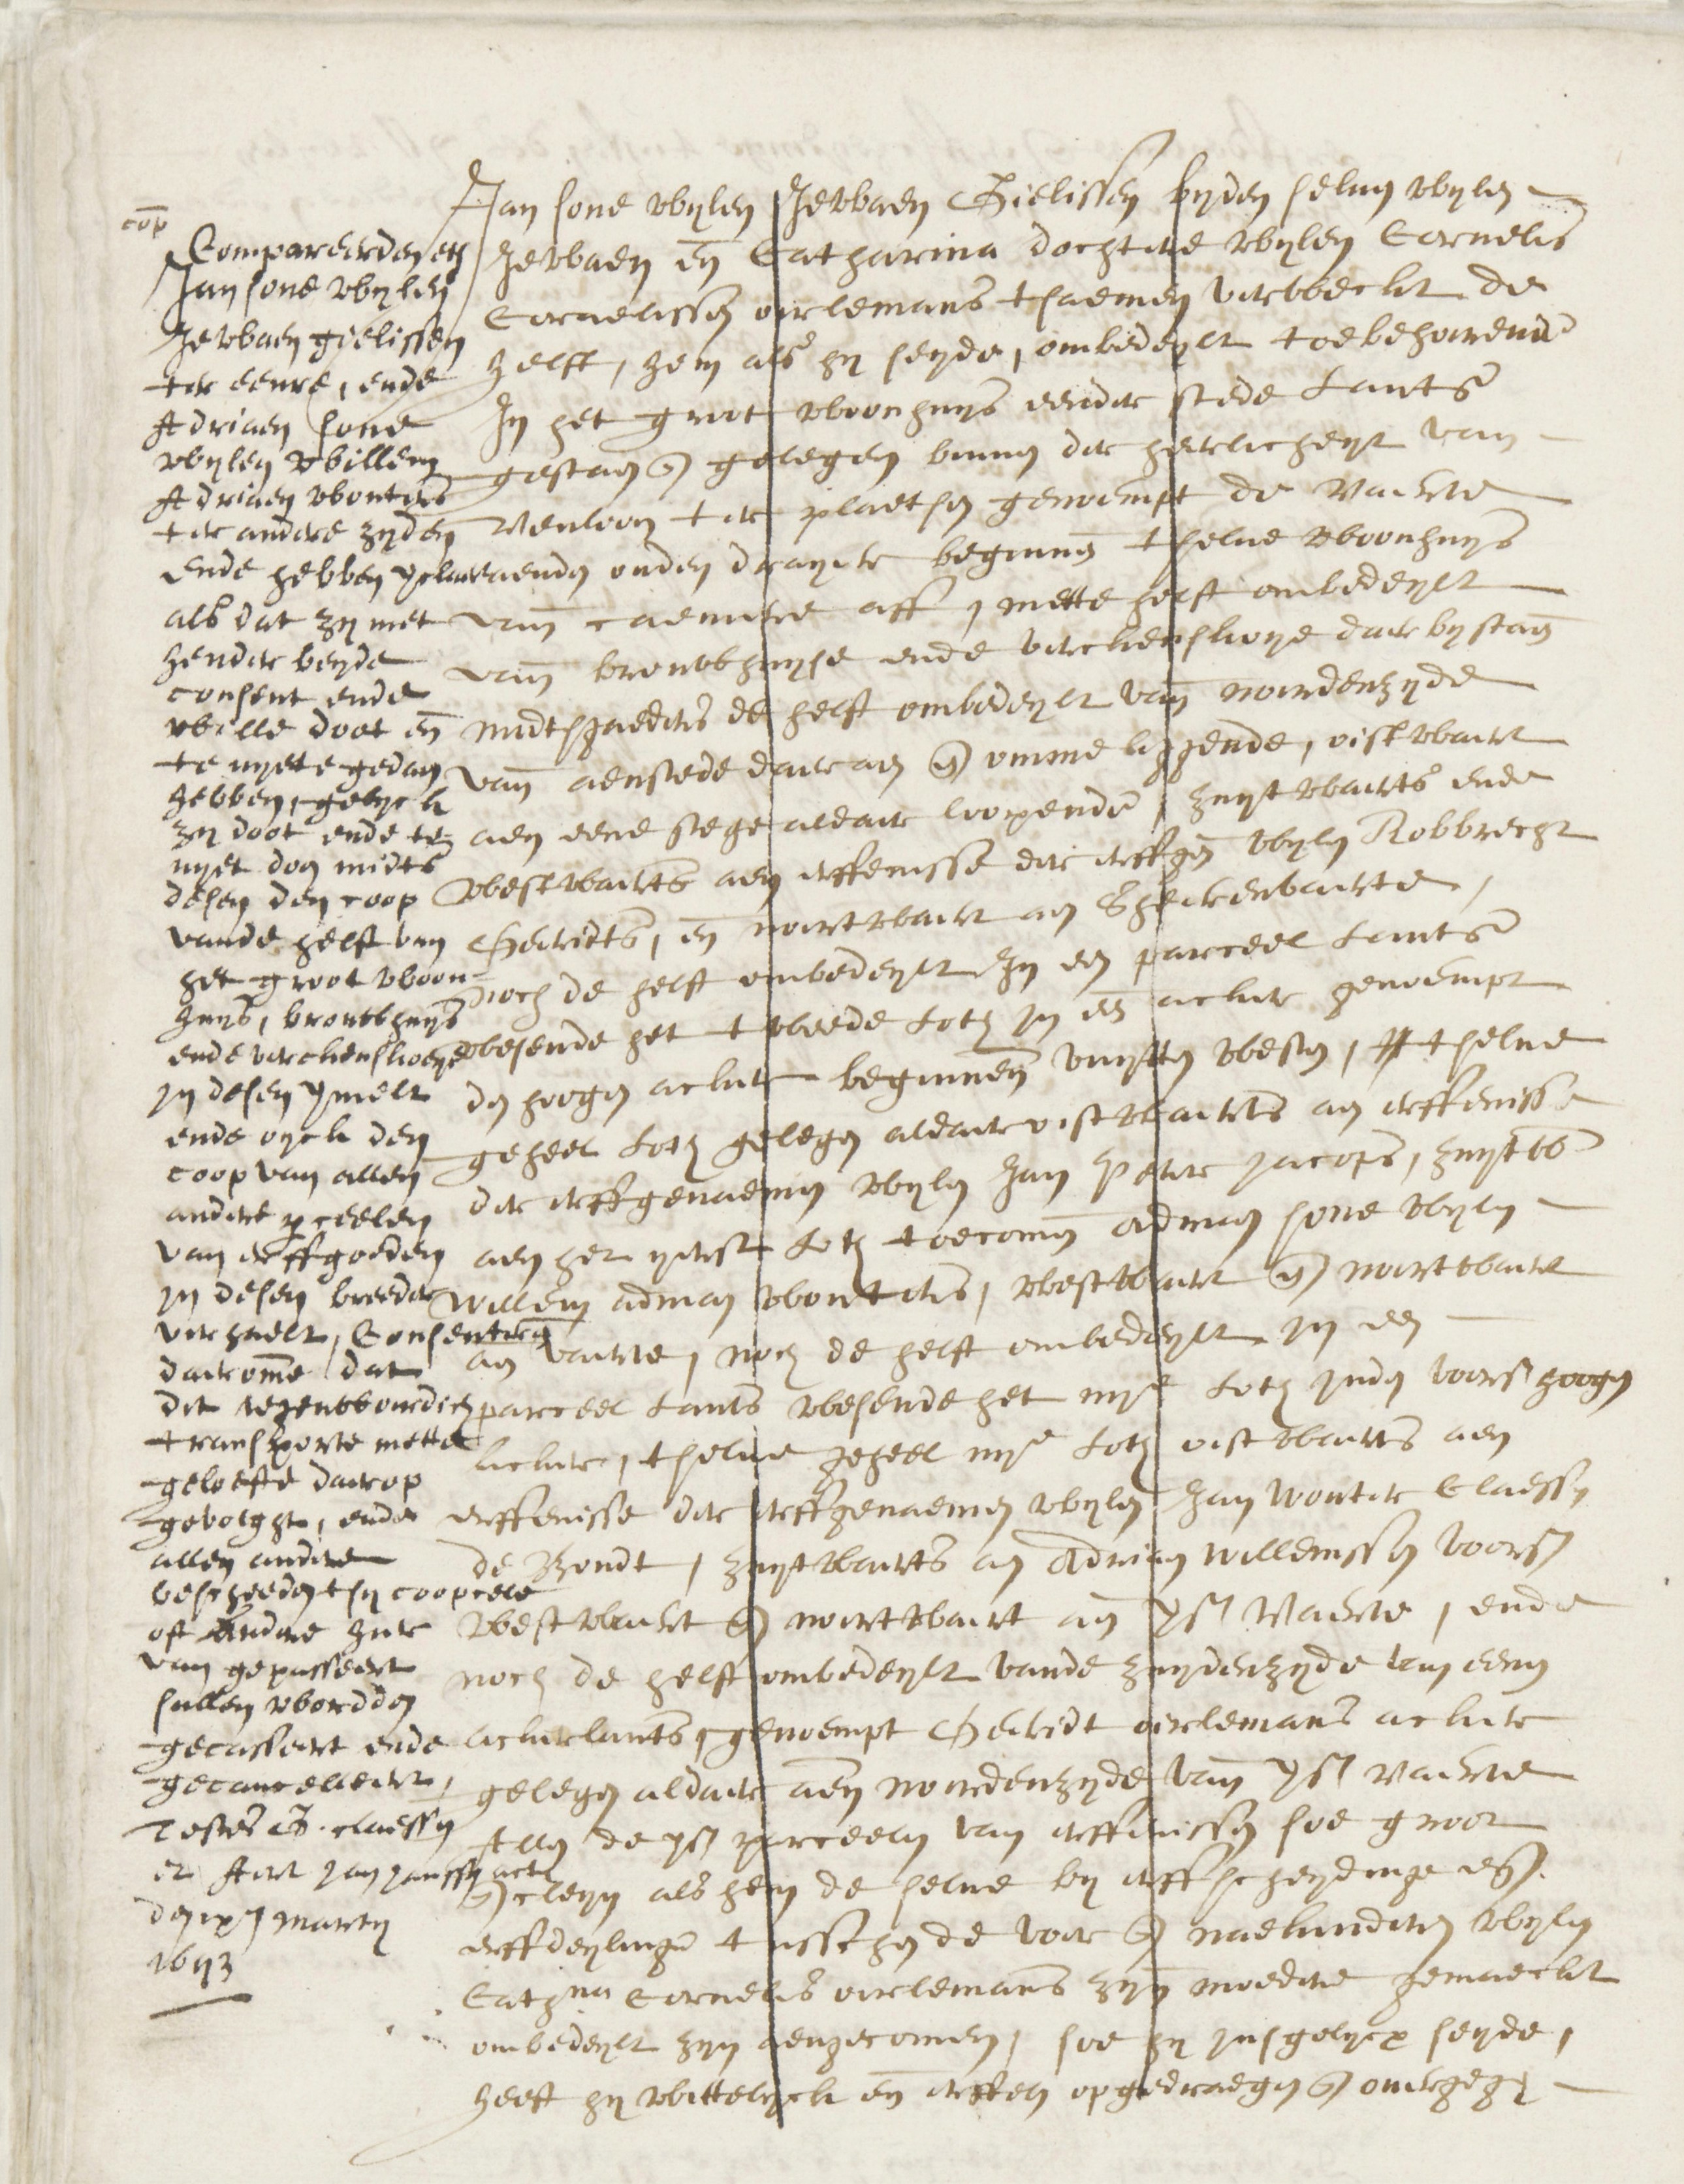 cop
Compareerden etc
Jan sone wylen
Jerbaen Gielissen
ter eenre, ende
Adriaen sone
wylen Willem
Adriaen Wouters
ter andere zyden
ende hebben
als dat zy met
hender beyde
consent ende
wille doot en
te nyete gedaen
hebben, gelyck
zy doot ende te
nyet doen midts
desen den coop
vande helft van
het groot woon
huys, brouwhuys
ende verckenskoye
in desen gemelt
ende oyck den
coop van allen
andere pceelen
van erffgoeden
in desen breeder
verhaelt, Consenteren
dairomme dat
dit tegenwoordich
transporte mette
geloefte dairop
gevolght, ende
allen andere
bescheeden tsy coopcele
oft andere hier
van gepasseert
sullen wordden
gecasseert ende
gecancelleert,
Testes G. Claessen
et Aert Jan Janssen act
den Martij
1613
Jan sone wylen Jerbaen Gielissen byden selven wylen
Jerbaen en Catharina dochtere wylen Cornelis
Cornelissen oirlemans tsaemen verweckt de
helft, hem als hy seyde, ombedeylt toebehoirende
In het groot woonhuys eender stede Lants
gestaen en gelegen binnen der heerlicheyt van
Venloon ter plaetsen genoempt de Vaerte
aenden ouden drayer beginnen tselve woonhuys
vander caemere aff, mette helft ombedeylt
vanden brouwhuyse ende verckenskoye dair by staen
midtsgaeders de helft ombedeylt vander noordenzyde
vanden aenstede dair aen en omme liggende, oistwaert
aen eene stege aldair loopende, zuytwaerts ende
westwaerts aen erffenisse der erffgen wylen Robbrecht
Geeridts, en noirtwaert aen Sheerenvaerte,
Noch de helft ombedeylt In een parceel Lants
wesende het tweede Loth in een acker genoempt
den hoogen acker beginnen vuytten westen, tselve
geheel Loth gelegen aldair oistwaerts aen erffenisse
der erffgenaemen wylen Jan Peter Jacops, zuytw
aen het yerst Loth toecomen Adriaen sone wylen
Willem Adriaen Wouters, westwaert en noirtwaert
aen vaerte, noch de helft ombedeylt in een
parceel Lants wesende het iiije Loth inden voirs hoogen
acker, tselve geheel iiije Loth oistwaerts aen
erffenisse der erffgenaemen wylen Jan Wouter Claessen
de Hondt, zuytwaerts aen Adriaen Willemssen voirs
westwaert en noirtwaert aen ys Vaerte, ende
noch de helft ombedeylt vande zuydenzyde van eenen
ackerlants, genoempt Geeridt oirlemans acker
gelegen aldair aen noordenzyde vander ys vaerte
Allen de ys parceelen van erffenissen soe groot
en cleyn als hem de selve by erffscheydinge
erffdeylinge tusschen de voir en naekinderen wylen
Cathna Cornelis oirlemans zyn moedere gemaeckt
ombedeylt zyn aengecomen, soe hy insgelycx seyde,
heeft hy wittelyck en erffelyck opgedraegen en overgege